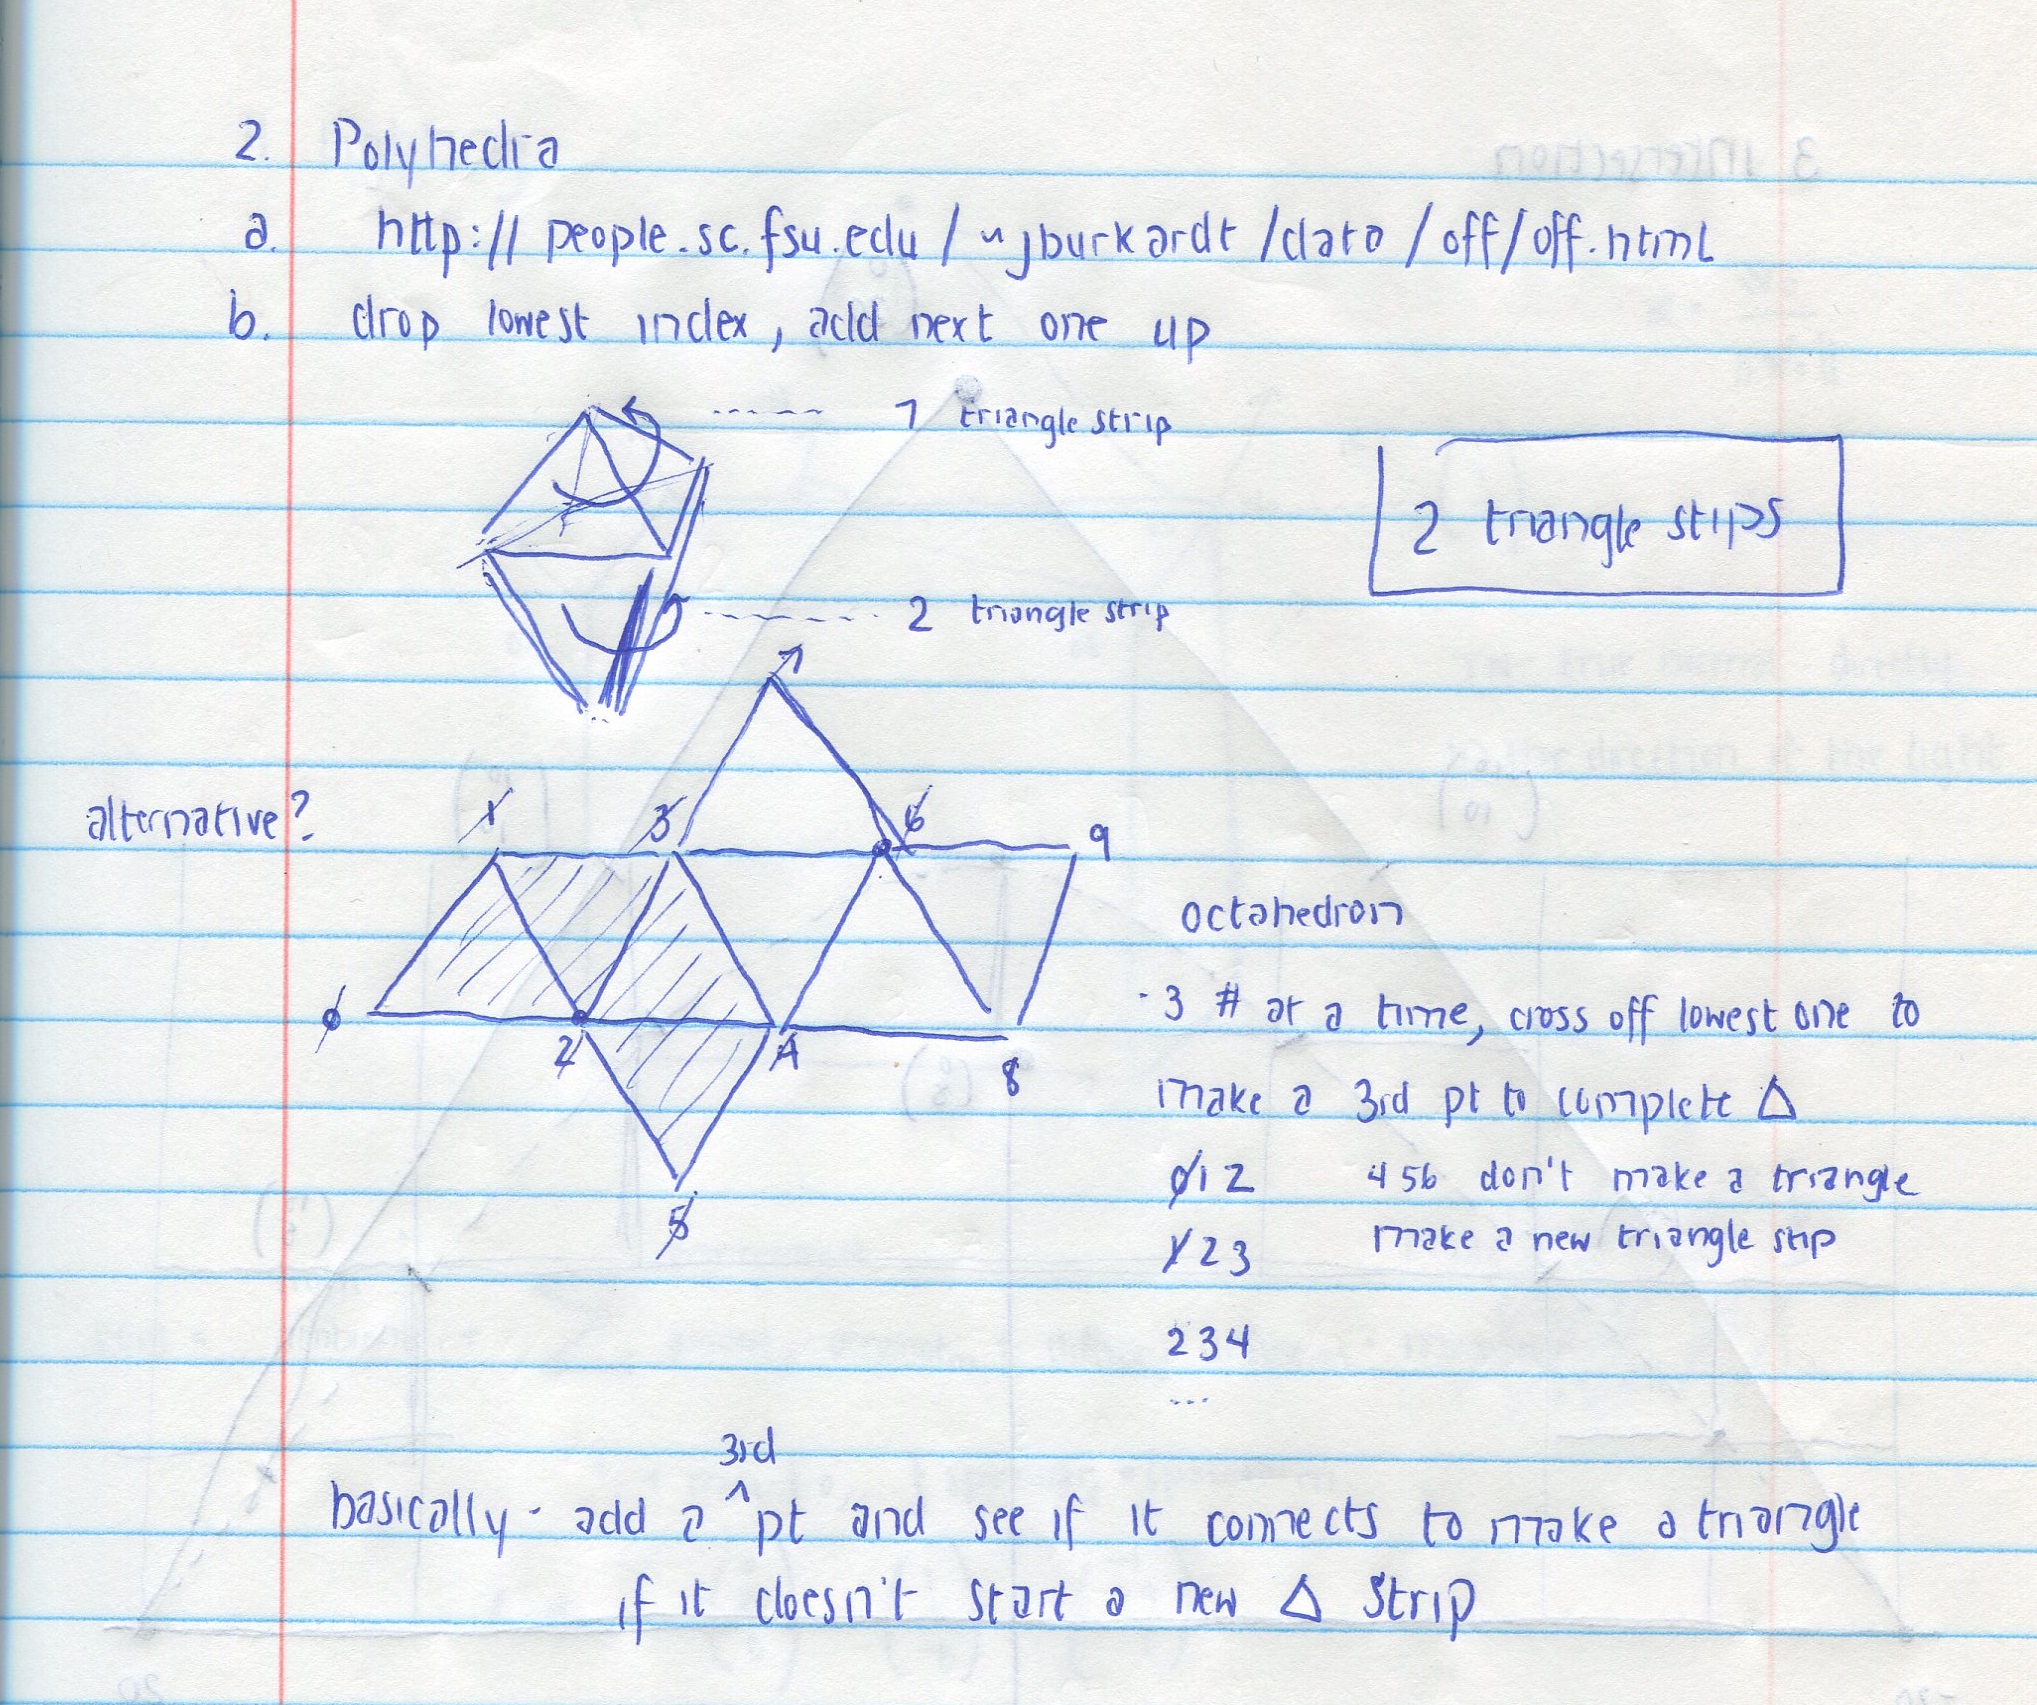 2. Polyhedra
a. http://people.sc.fsu.edu/~jburkardt/data/off/off.html
b. drop lowest index, add next one up
1 triangle strip
2 triangle stips
2 triangle strip
7
alternative?
1 3 6 9
0 2 4 8
5
octahedron
· 3 # at a time, cross off lowest one to
make a 3rd pt to complete Δ
012 456 don't make a triangle
123 make a new triangle strip
234
...
3rd
basically - add a ^ pt and see if it connects to make a triangle
if it doesn't start a new Δ strip